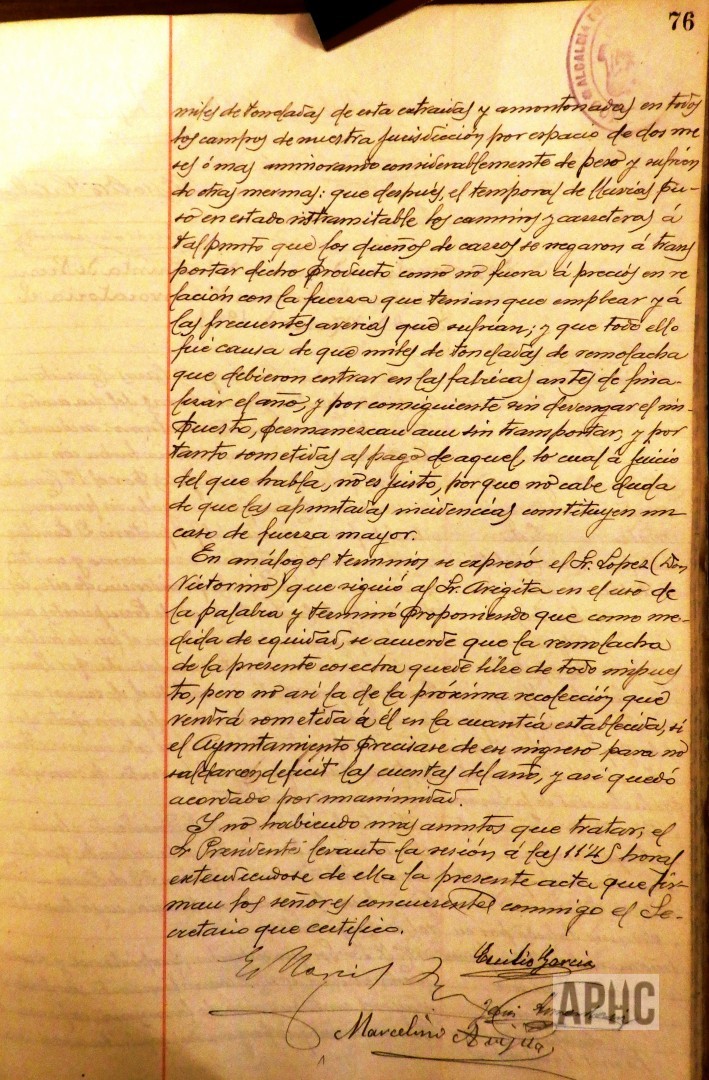 76
ALCALDIA
miles de toneladas de esta extraidas y amontonadas en todos
los campos de nuestra jurisdicción por espacio de dos me-
ses ó mas aminorando considerablemente de peso y sufrien
do otras mermas: que después, el temporal de lluvias pu-
so en estado intramitable los caminos y carreteras á
tal punto que los dueños de carros se negaron á trans
portar dicho producto como no fuera a precios en re
lación con la fuerza que tenian que emplear y á
las frecuentes averias que sufrian; y que todo ello
fué causa de que miles de toneladas de remolacha
que debieron entrar en las fabricas antes de fina-
lizar el año, y por consiguiente sin devengar el im-
puesto, permanezcan aun sin transportar, y por
tanto sometidas al pago de aquel, lo cual á juicio
del que habla, no es justo, porque no cabe duda
de que las apuntadas incidencias constituyen un
caso de fuerza mayor.
En análogos terminos se expresó el Sr. Lopez (Don
Victorino) que siguió al Sr. Arigita en el uso de
la palabra y terminó proponiendo que como me-
dida de equidad, se acuerde que la remolacha
de la presente cosecha quede libre de todo impues
to, pero no asi la de la próxima recolección que
vendrá sometida á él en la cuantía establecida, si
el Ayuntamiento precisase de ese ingreso para no
saldar con deficit las cuentas del año, y asi quedó
acordado por unanimidad.
Y no habiendo más asuntos que tratar, el
Sr Presidente levanto la sesión á las 11'45 horas
extendiendose de ella la presente acta que fir-
man los señores concurentes conmigo el Se-
cretario que certifico.
Garcia
Marcelino Arigita
APHC